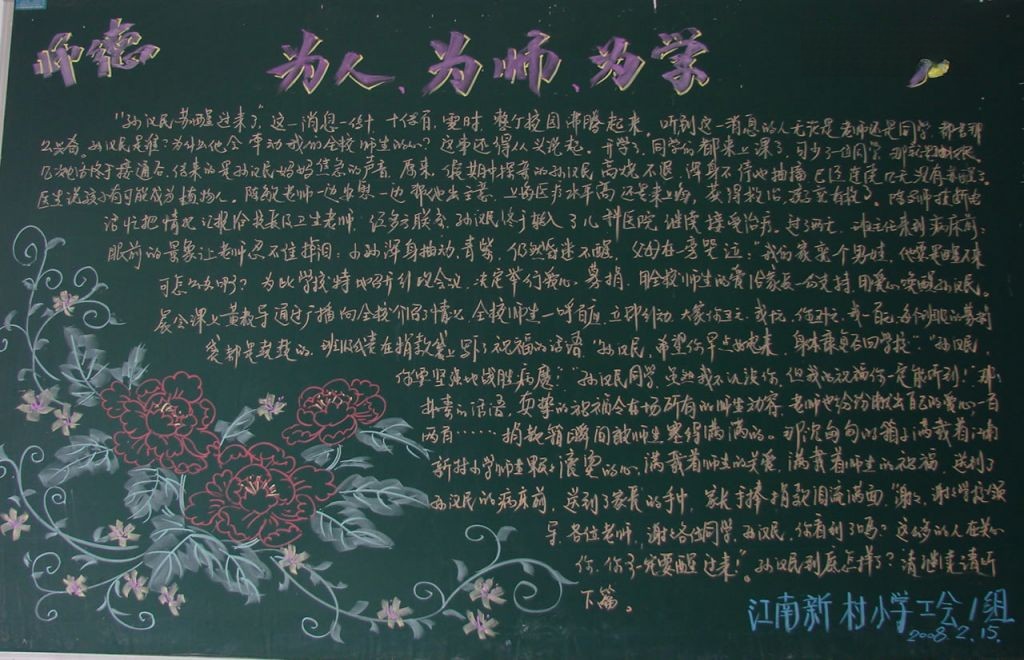 师德
为人、为师、为学
"孙汉民苏醒过来了"这一消息一传十,十传百,霎时,整个校园沸腾起来。听到这一消息的人无论是老师还是同学,都
孙汉民是谁?为什么他会牵动我们全校师生的心?这事还得从头说起。开学了,同学们都来上课了,可少了一位同学,
电话终于接通后,传来的是孙汉民妈妈焦急的声音,原来,假期中接寄的孙汉民高烧不退,浑身不停地抽搐,已经连续几天没有
医生说孩子有可能成为植物人。陈敏老师一边安慰一边帮他出主意,上海医疗水平高还是来上海,
话忙把情况汇报给校长及卫生老师,经多方联系,孙汉民终于搬入了儿科医院,继续接受治疗。过了两天,班主任来到病床前:
眼前的景象让老师忍不住掉泪:小孙浑身抽动,青紫,仍然昏迷不醒,父母在旁哭泣:"我们家
可怎么办啊?为此学校特地召开行政会议,决定举行爱心募捐,用全校师生的爱给家长一份支持,用爱心唤醒孙汉民。
晨会课上黄教导通过广播向全校介绍了情况,全校师生一呼百应,立即行动,大家你五元,我十元,
袋都是鼓鼓的,班级代表在捐款袋上写了祝福的话语"孙汉民,希望你早点好起来,身体康复后回学校","孙汉民,
你要坚强地战胜病魔!""孙汉民同学,虽然我不认识你,但我的祝福你一定能听到!"那
朴素的话语,真挚的祝福令在场所有的师生动容,老师也纷纷献出自己的爱心,一百
两百……捐款箱瞬间被师生塞得满满的。那沉甸甸的箱子满载着江南
新村小学师生滚烫的心,满载着师生的关爱,满载着师生的祝福,送到了
孙汉民的病床前,送到了家长的手中,家长手捧捐款泪流满面,"谢谢,谢谢学校领
导,各位老师,谢谢各位同学,孙汉民,你看到了吗?这么多的人在关心
你,你一定要醒过来!"孙汉民到底怎样了?请继续请听
下篇。
江南新村小学工会1组
2008.2.15.